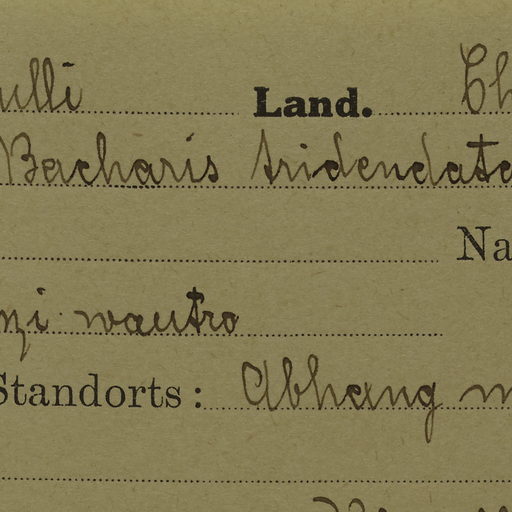 ulli Land. Ch
Bacharis tridendate
Na
nzi wautro
Standorts: Abhang m